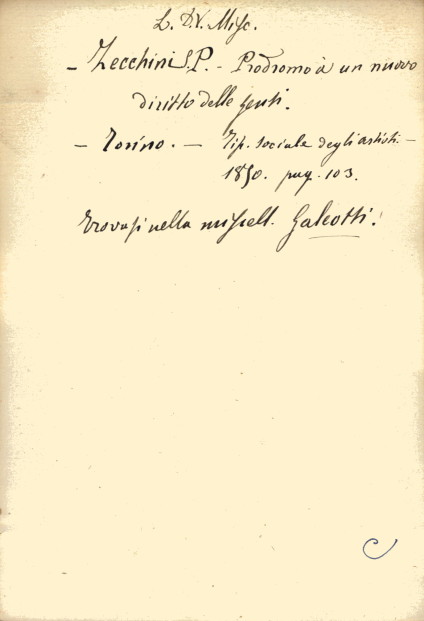 L. DV. Misc.
– Zecchini S.P. – Prodromo a un nuovo
diritto delle Genti.
– Torino. – Tip. sociale degli artisti. –
1850. pag. 103.
trovasi nella miscell. Galeotti.